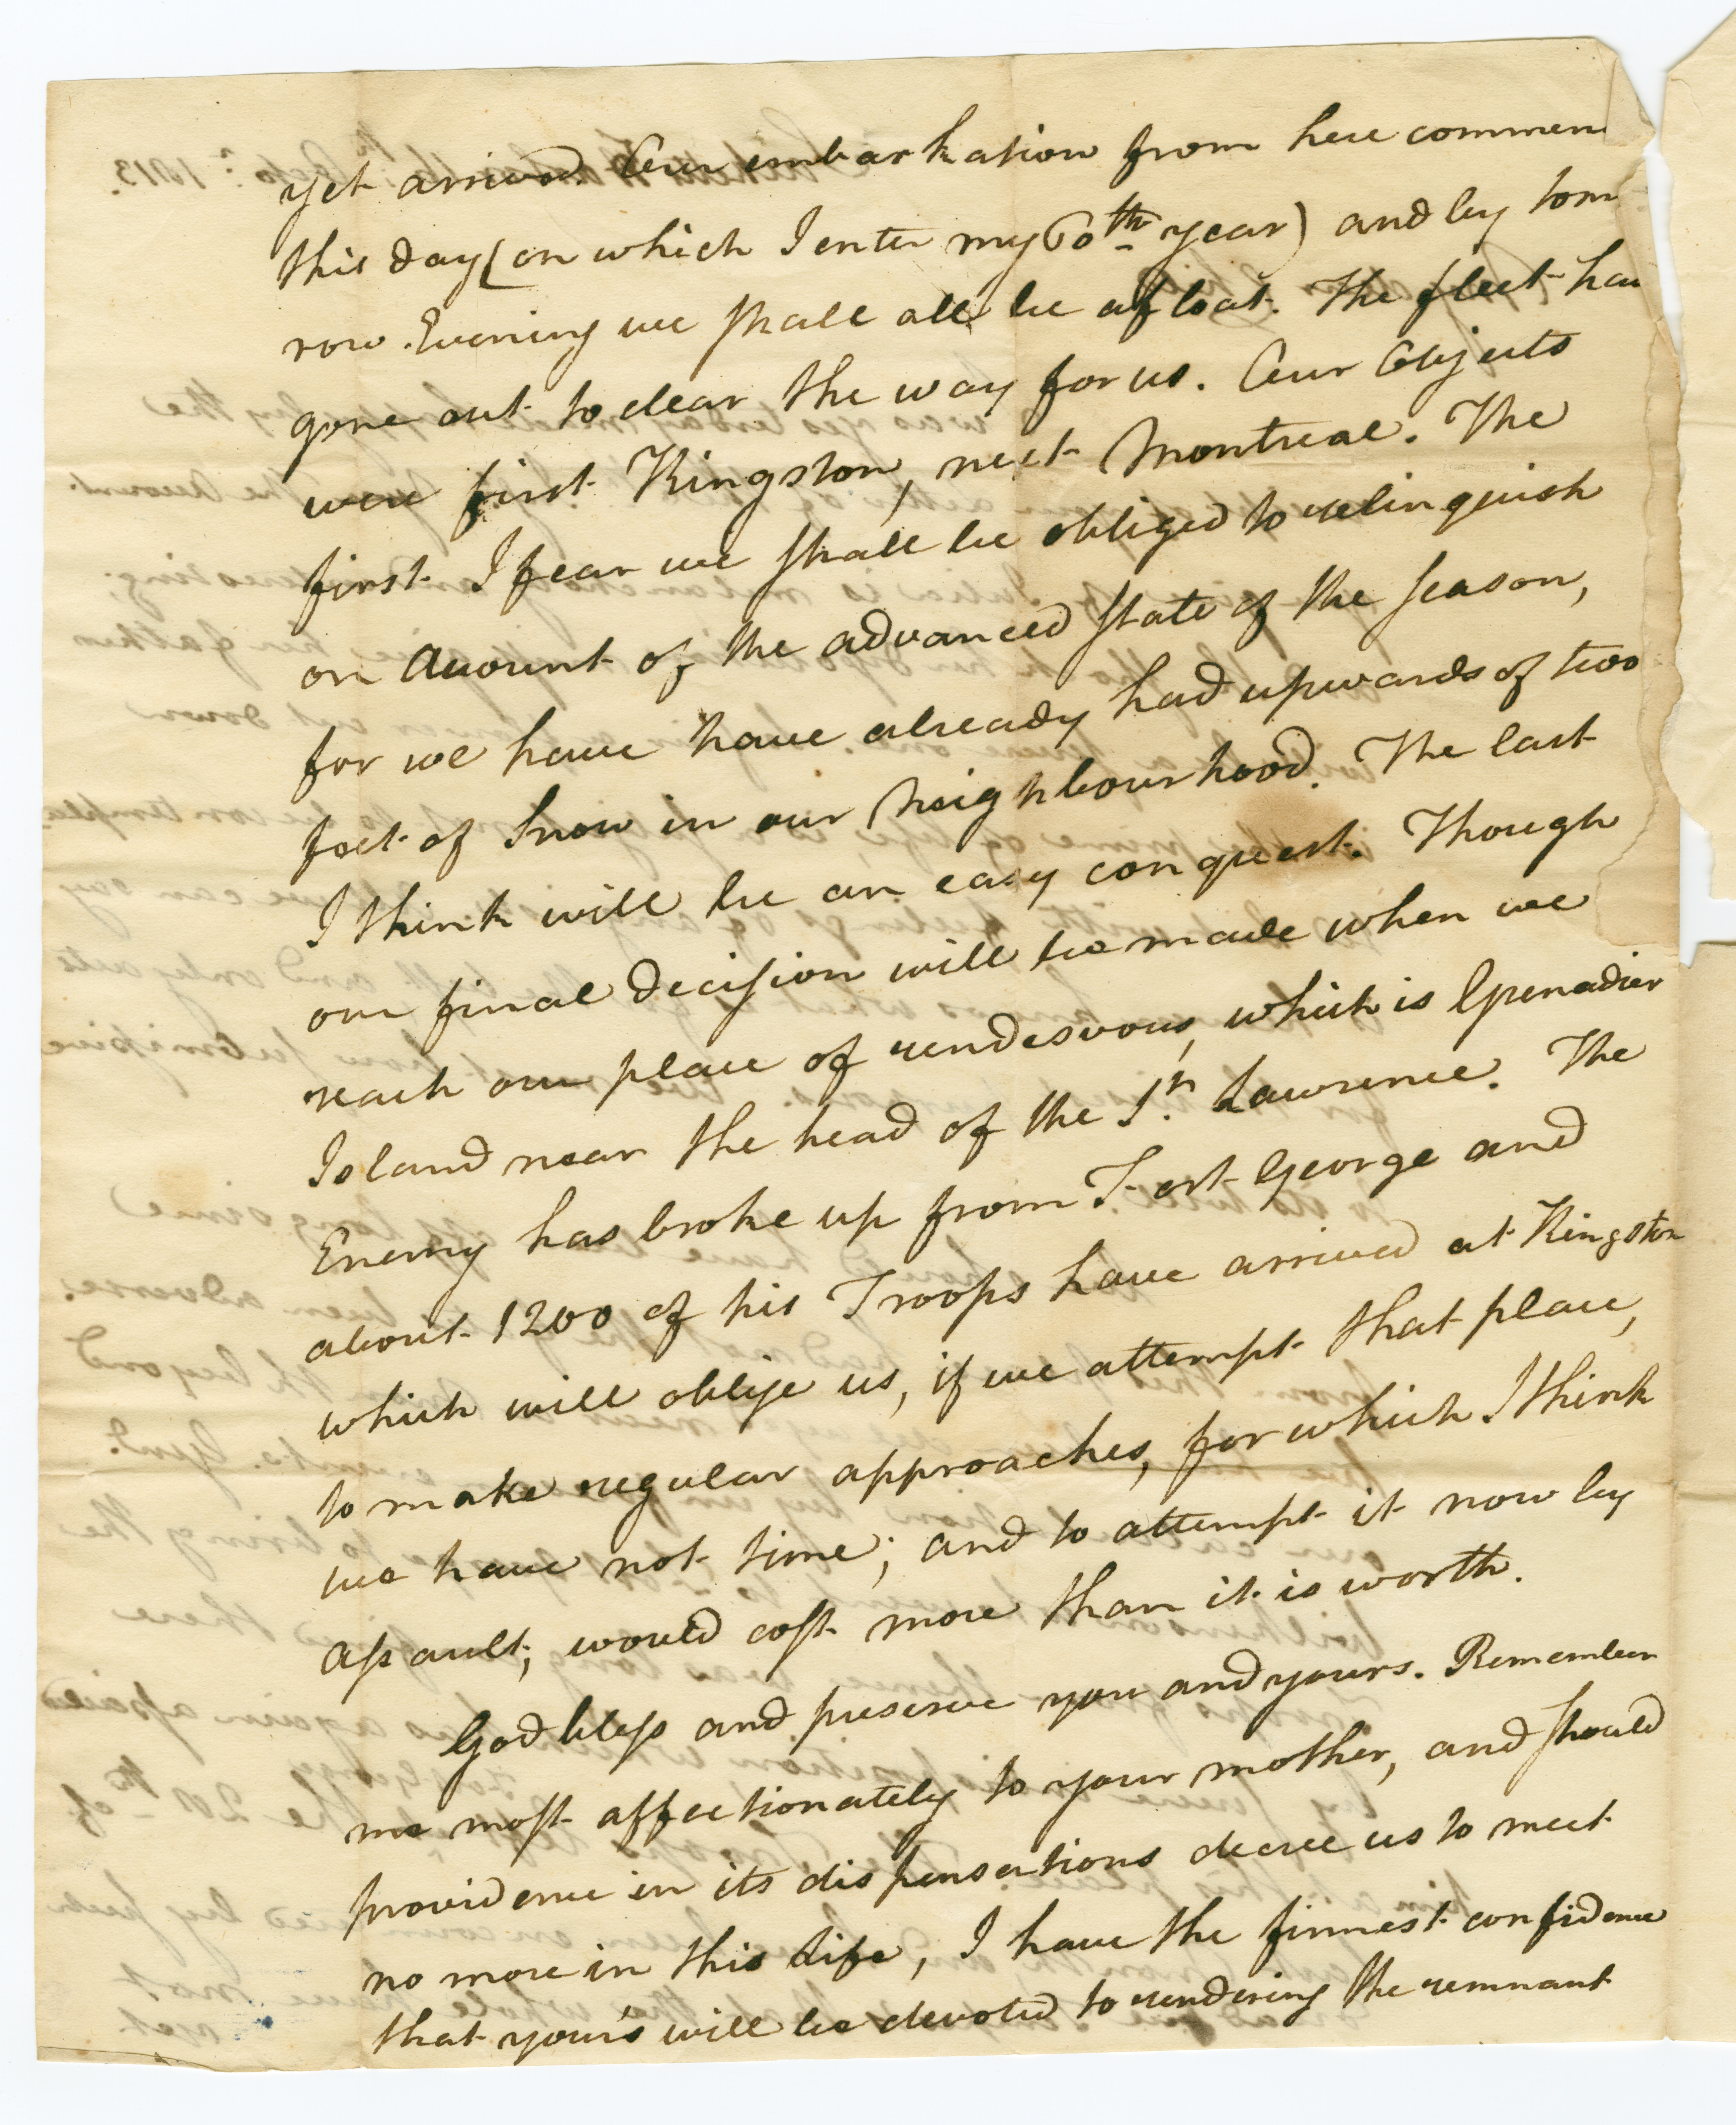 yet arrived. Our embarkation from here commen
this day (on which I enter my 60th year) and by tom
row Evening we shall all be afloat. The fleet hav
gone out to clear the way for us. Our Objects
were first Kingston, next Montreal. The
first I fear we shall be obliged to relinquish
on Account of the advanced state of the season,
for we have have already had upwards of two
feet of Snow in our Neighbourhood. The last
I think will be an easy conquest. Though
our final decision will be made when we
reach our place of rendesvous, which is Grenadier
Island near the head of the St. Lawrence. The
Enemy has broke up from Fort George and
about 1200 of his Troops have arrived at Kingston
which will oblige us, if we attempt that place,
to make regular approaches, for which I think
we have not time; and to attempt it now by
assault, would cost more than it is worth.
God bless and preserve you and yours. Remember
me most affectionately to your mother, and should
providence in its dispensations decree us to meet
no more in this life, I have the firmest confidence
that your's will be devoted to rendering the remnant